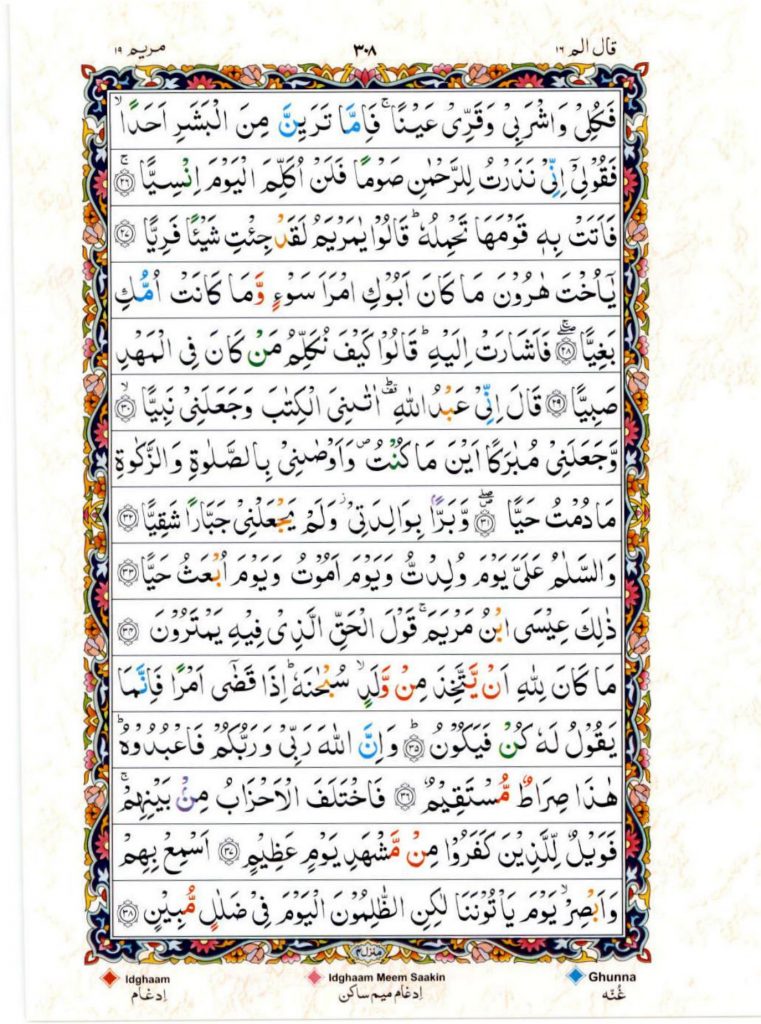 قال الم ١٦ ٣٠٨ مريم ١٩
فَكُلِيْ وَاشْرَبِيْ وَقَرِّيْ عَيْنًا ۚ فَاِمَّا تَرَيِنَّ مِنَ الْبَشَرِ اَحَدًا ۙ
فَقُوْلِيْۤ اِنِّيْ نَذَرْتُ لِلرَّحْمٰنِ صَوْمًا فَلَنْ اُكَلِّمَ الْيَوْمَ اِنْسِيًّا ۚ ﴿٢٦﴾
فَاَتَتْ بِهٖ قَوْمَهَا تَحْمِلُهٗ ؕ قَالُوْا يٰمَرْيَمُ لَقَدْ جِئْتِ شَيْـًٔا فَرِيًّا ﴿٢٧﴾
يٰۤاُخْتَ هٰرُوْنَ مَا كَانَ اَبُوْكِ امْرَاَ سَوْءٍ وَّمَا كَانَتْ اُمُّكِ
بَغِيًّا ۖۚ ﴿٢٨﴾ فَاَشَارَتْ اِلَيْهِ ؕ قَالُوْا كَيْفَ نُكَلِّمُ مَنْ كَانَ فِي الْمَهْدِ
صَبِيًّا ﴿٢٩﴾ قَالَ اِنِّيْ عَبْدُ اللّٰهِ ۛؕ اٰتٰىنِيَ الْكِتٰبَ وَجَعَلَنِيْ نَبِيًّا ۙ ﴿٣٠﴾
وَّجَعَلَنِيْ مُبٰرَكًا اَيْنَ مَا كُنْتُ ۪ وَاَوْصٰنِيْ بِالصَّلٰوةِ وَالزَّكٰوةِ
مَا دُمْتُ حَيًّا ۪ۖ ﴿٣١﴾ وَّبَرًّۢا بِوَالِدَتِيْ ؗ وَلَمْ يَجْعَلْنِيْ جَبَّارًا شَقِيًّا ﴿٣٢﴾
وَالسَّلٰمُ عَلَيَّ يَوْمَ وُلِدْتُّ وَيَوْمَ اَمُوْتُ وَيَوْمَ اُبْعَثُ حَيًّا ﴿٣٣﴾
ذٰلِكَ عِيْسَى ابْنُ مَرْيَمَ ۚ قَوْلَ الْحَقِّ الَّذِيْ فِيْهِ يَمْتَرُوْنَ ﴿٣٤﴾
مَا كَانَ لِلّٰهِ اَنْ يَّتَّخِذَ مِنْ وَّلَدٍ ۙ سُبْحٰنَهٗ ؕ اِذَا قَضٰۤى اَمْرًا فَاِنَّمَا
يَقُوْلُ لَهٗ كُنْ فَيَكُوْنُ ؕ ﴿٣٥﴾ وَاِنَّ اللّٰهَ رَبِّيْ وَرَبُّكُمْ فَاعْبُدُوْهُ ؕ
هٰذَا صِرَاطٌ مُّسْتَقِيْمٌ ﴿٣٦﴾ فَاخْتَلَفَ الْاَحْزَابُ مِنْۢ بَيْنِهِمْ ۚ
فَوَيْلٌ لِّلَّذِيْنَ كَفَرُوْا مِنْ مَّشْهَدِ يَوْمٍ عَظِيْمٍ ﴿٣٧﴾ اَسْمِعْ بِهِمْ
وَاَبْصِرْ ۙ يَوْمَ يَاْتُوْنَنَا لٰكِنِ الظّٰلِمُوْنَ الْيَوْمَ فِيْ ضَلٰلٍ مُّبِيْنٍ ﴿٣٨﴾
منزل ٤
Idghaam Idghaam Meem Saakin Ghunna
اِدغام اِدغام میم ساکن غُنّه